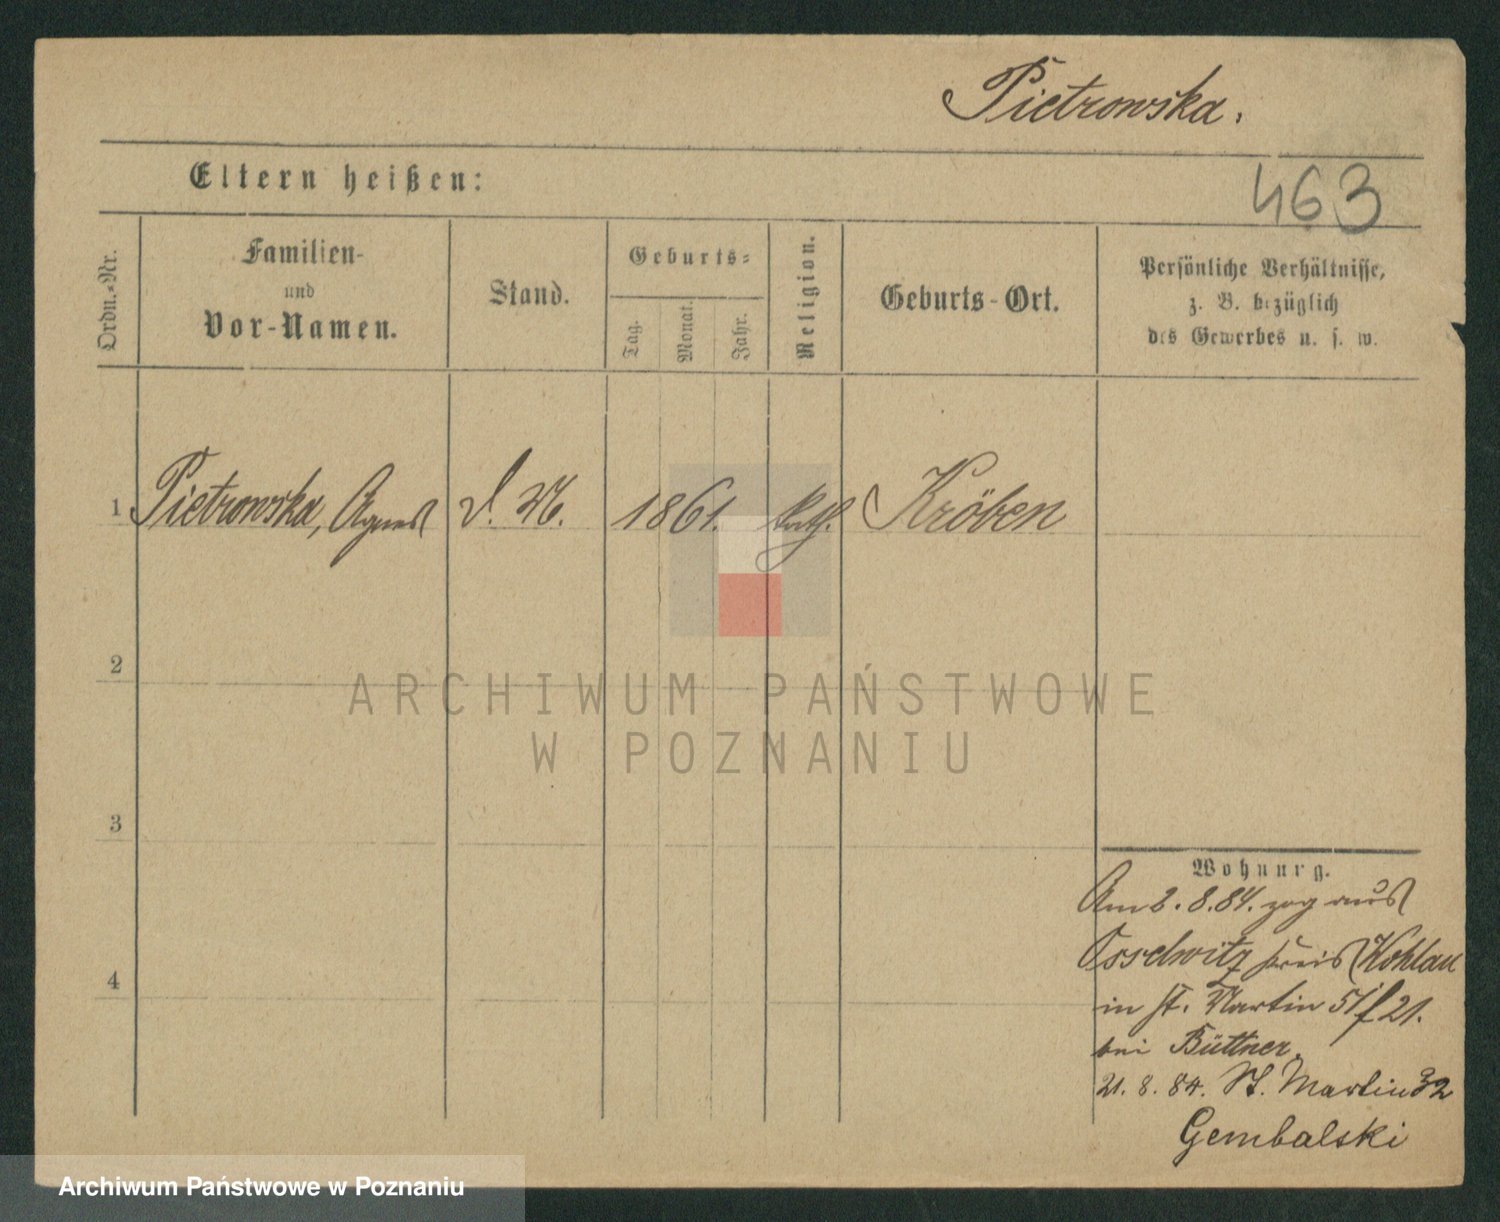 Pietrowska.
Eltern heißen:
463
Ordn.-Nr.
Familien-
und
Vor-Namen.
Stand.
Geburts-
Tag.
Monat.
Jahr.
Religion.
Geburts-Ort.
Persönliche Verhältnisse,
z. B. bezüglich
des Gewerbes u. s. w.
1 Pietrowska, Agnes d. M. 1861. kath. Kröben
2
3
4
Wohnung.
Am 2.8.84. zog aus
Osschwitz Kreis Wohlau
in St. Martin 51 f 21.
bei Büttner.
21.8.84. St. Martin 32
Gembalski
ARCHIWUM PAŃSTWOWE
W POZNANIU
Archiwum Państwowe w Poznaniu